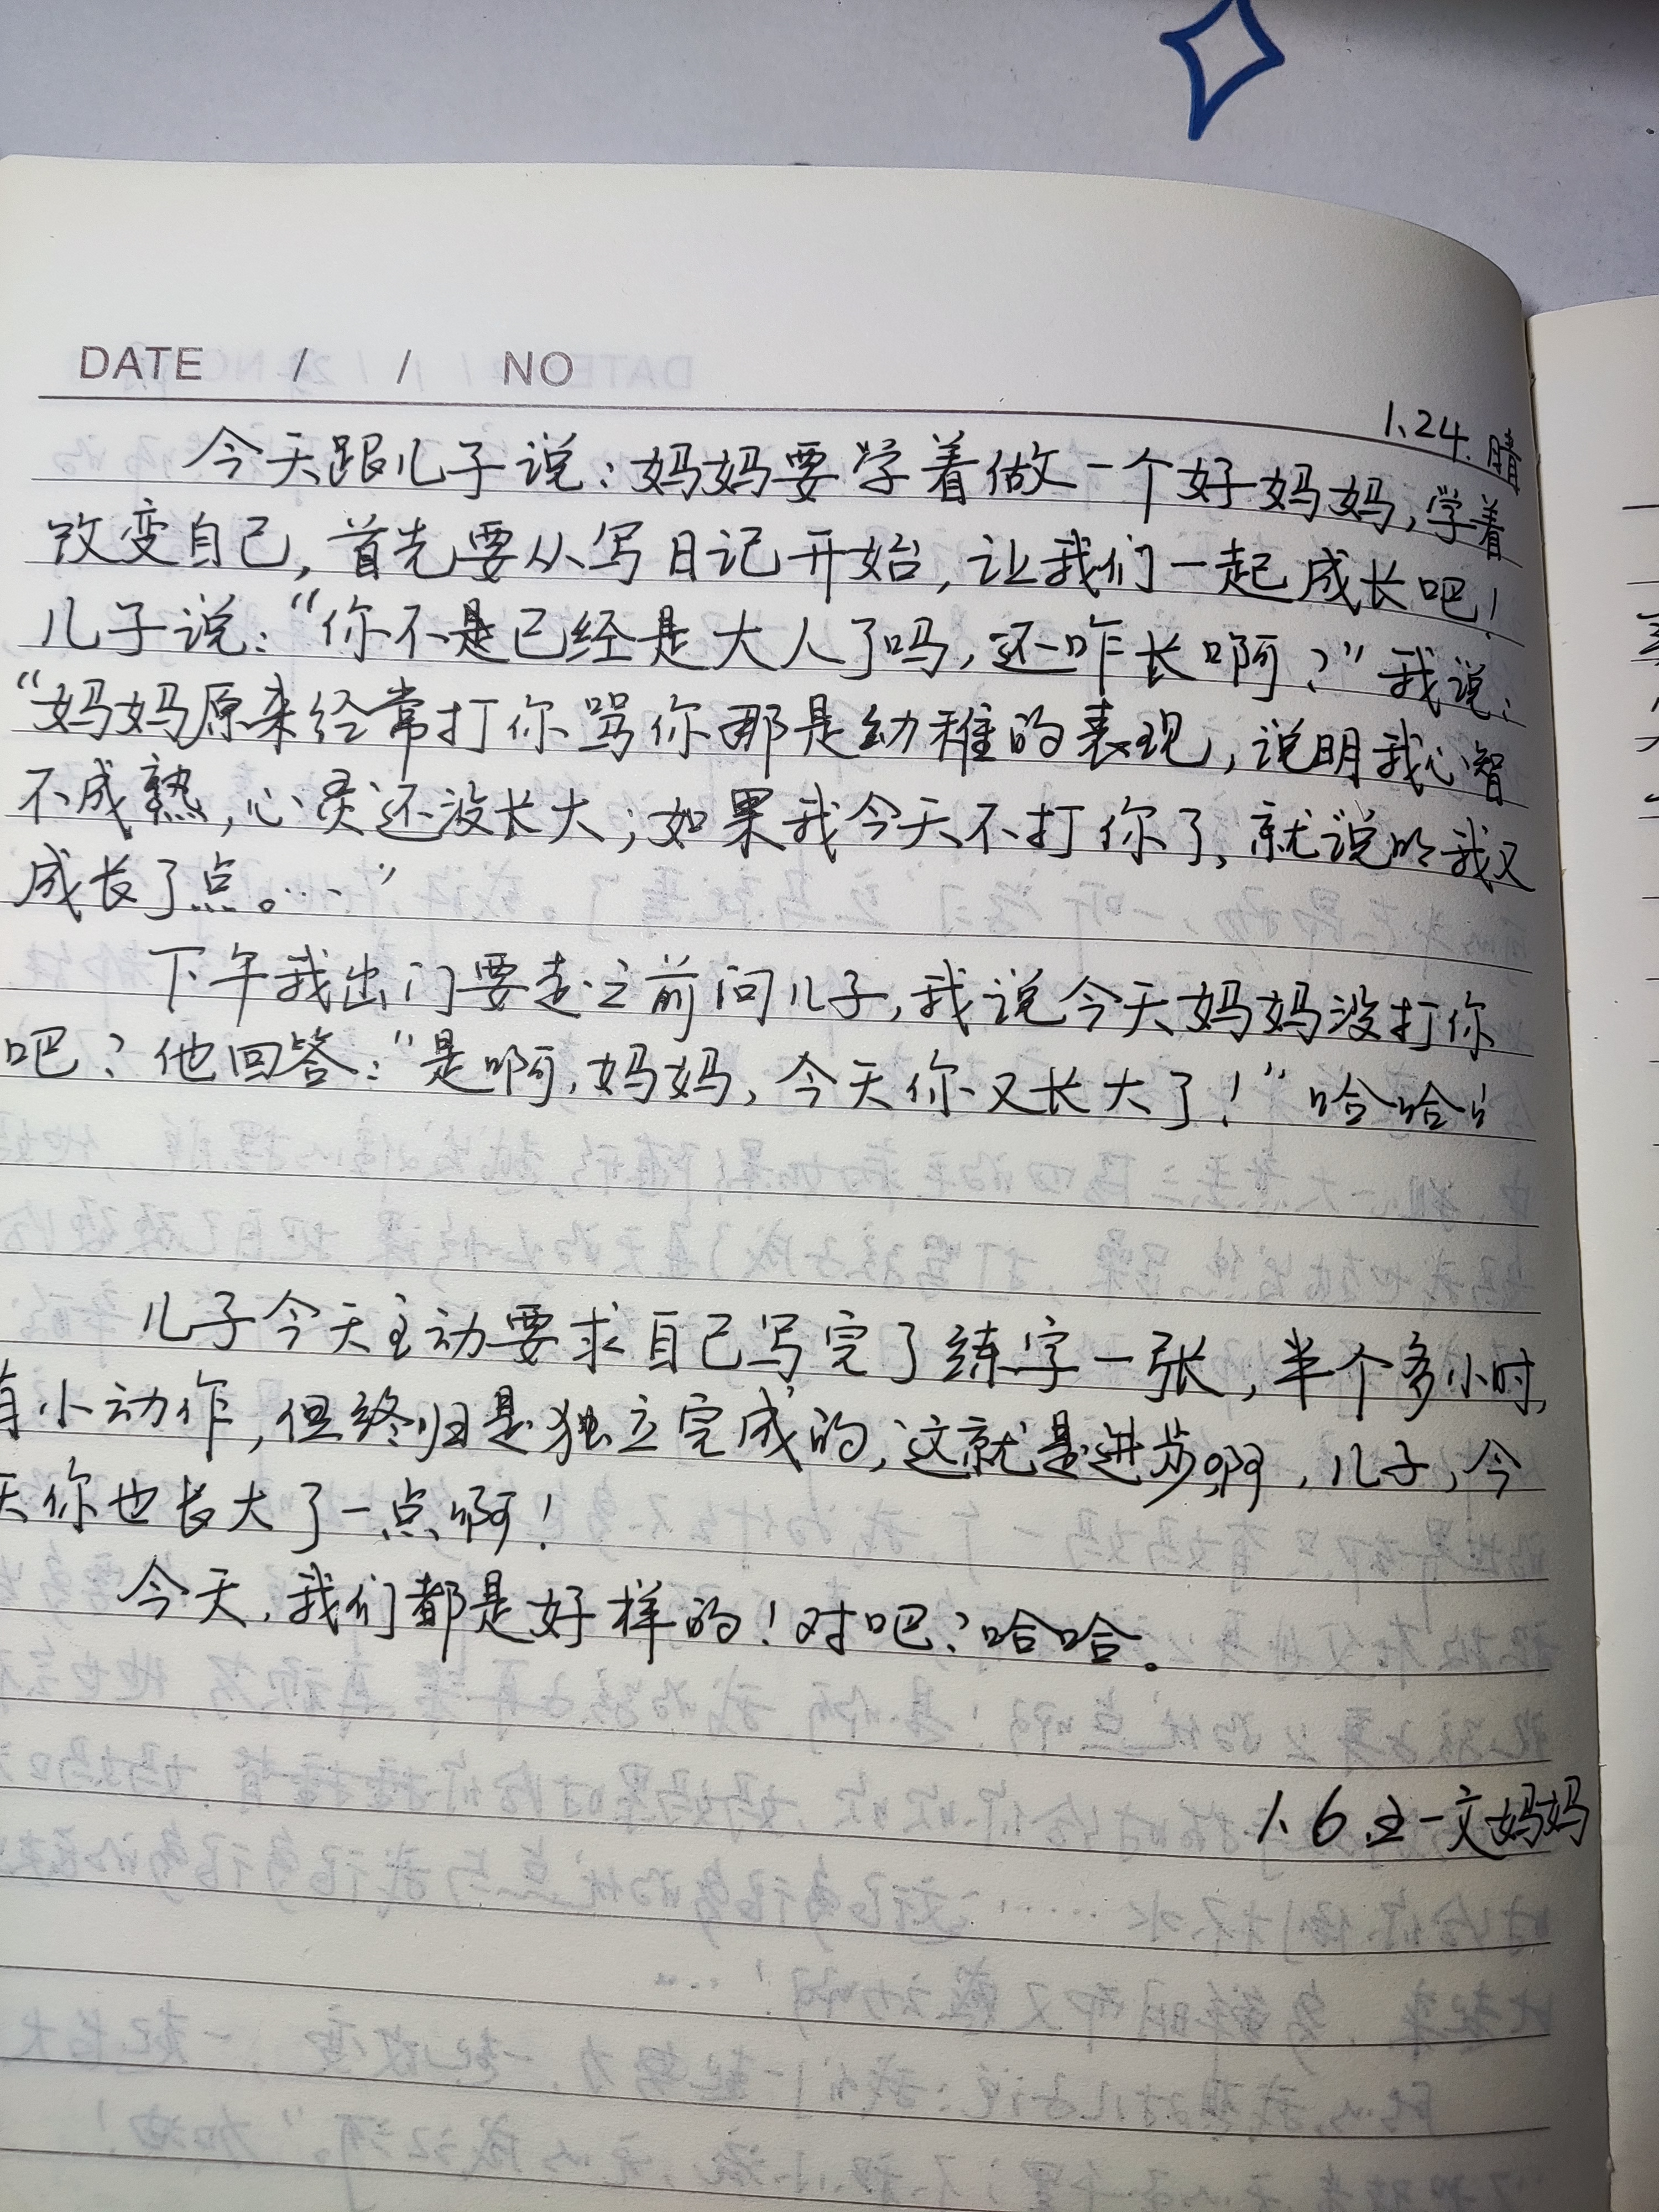 DATE / / NO
1.24. 晴
今天跟儿子说：妈妈要学着做一个好妈妈，学着
改变自己，首先要从写日记开始，让我们一起成长吧！
儿子说：“你不是已经是大人了吗，还咋长啊？”我说：
“妈妈原来经常打你骂你那是幼稚的表现，说明我心智
不成熟，心灵还没长大；如果我今天不打你了，就说明我又
成长了点。…”
下午我出门要走之前问儿子，我说今天妈妈没打你
吧？他回答：“是啊，妈妈，今天你又长大了！”哈哈！！
儿子今天主动要求自己写完了练字一张，半个多小时，
有小动作，但终归是独立完成的，这就是进步啊，儿子，今
天你也长大了一点啊！
今天，我们都是好样的！对吧？哈哈。
1、6 文妈妈